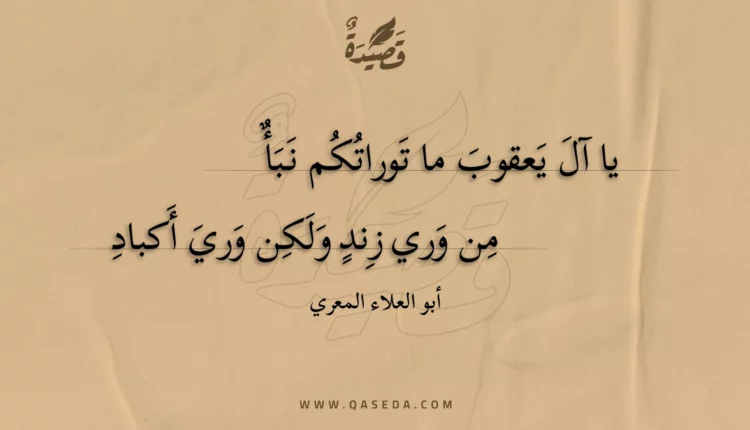 قَصِيْدَةٌ
يا آلَ يَعقوبَ ما تَوراتُكُم نَبَأٌ
مِن وَري زِندٍ وَلَكِن وَريَ أَكبادِ
أبو العلاء المعري
WWW.QASEDA.COM